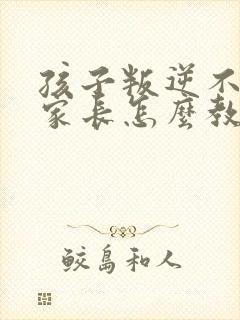 孩子叛逆不
家长怎麼教
鲛島和人